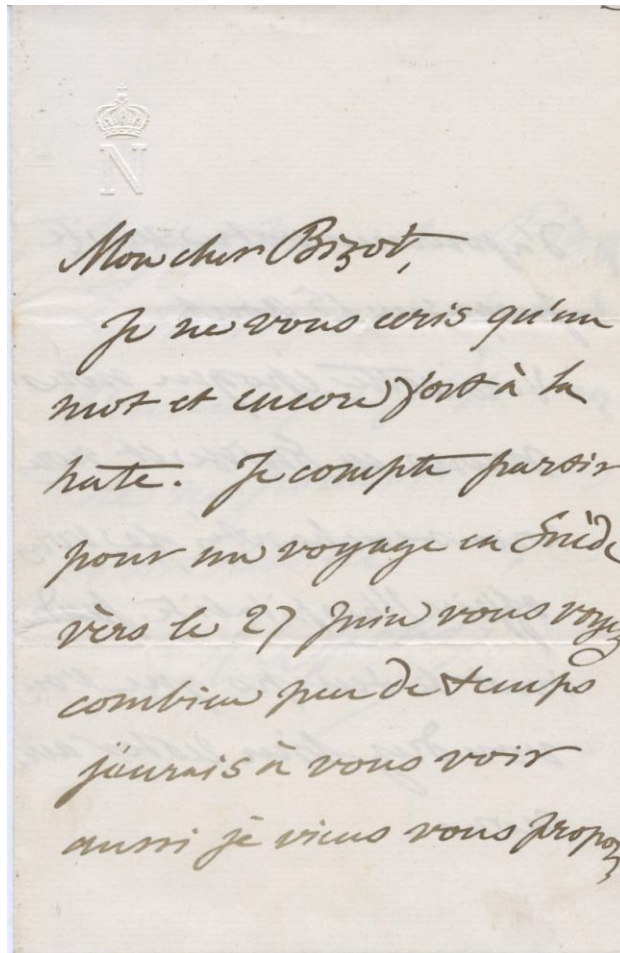 N
Mon cher Bizot,
Je ne vous ecris qu'un
mot et encore fort à la
hate. Je compte partir
pour un voyage en Suède
vèrs le 27 Juin vous voyez
combien peu de temps
j'aurais à vous voir
aussi je viens vous propoz